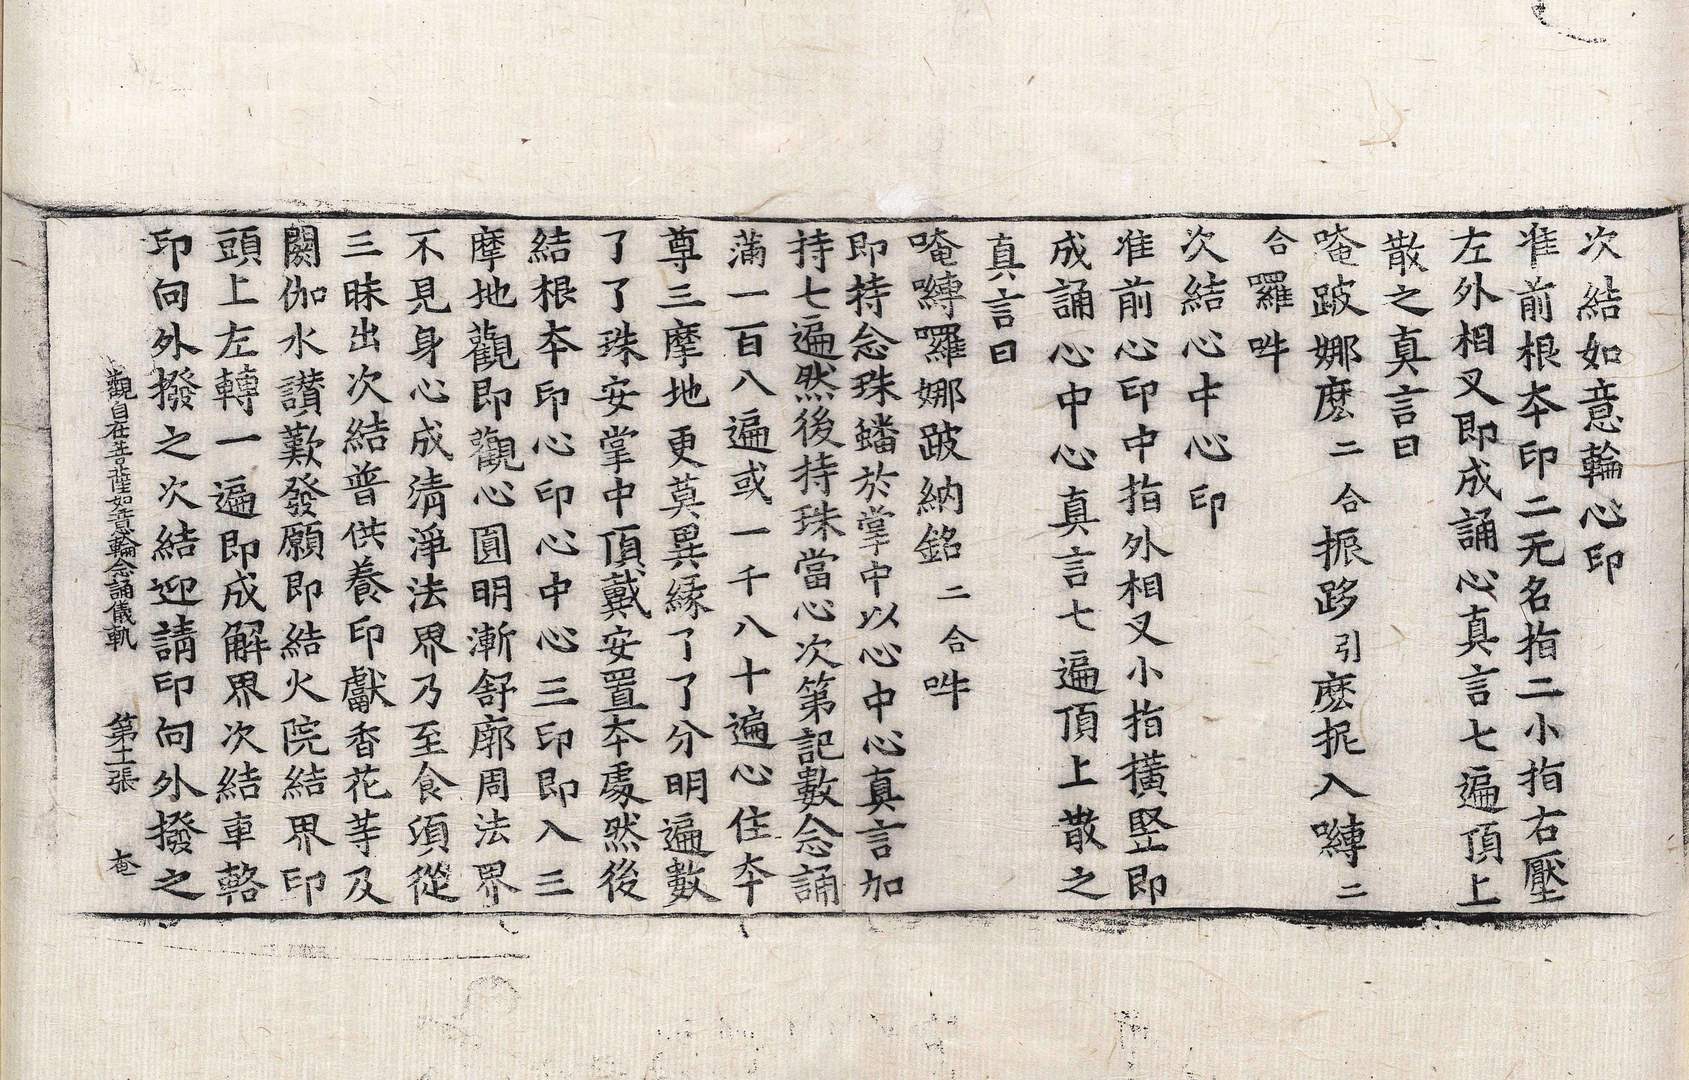 次結如意輪心印
准前根本印二无名指二小指右壓
左外相叉即成誦心真言七遍頂上
散之真言曰
唵跛娜麽二合振跢引麽抳入嚩二
合囉吽
次結心中心印
准前心印中指外相叉小指橫竪即
成誦心中心真言七遍頂上散之
真言曰
唵嚩囉娜跛納銘二合吽
即持念珠蟠於掌中以心中心真言加
持七遍然後持珠當心次第記數念誦
蒲一百八遍或一千八十遍心住本
尊三摩地更莫異緣了了分明遍數
了了珠安掌中頂戴安置本處然後
結根本印心印心中心三印即入三
摩地觀即觀心圓明漸舒廓周法界
不見身心成清淨法界乃至食須從
三昧出次結普供養印獻香花等及
閼伽水讚歎發願即結火院結界印
頭上左轉一遍即成解界次結車輅
印向外撥之次結迎請印向外撥之
觀自在菩薩如意輪念誦儀軌 第十一張